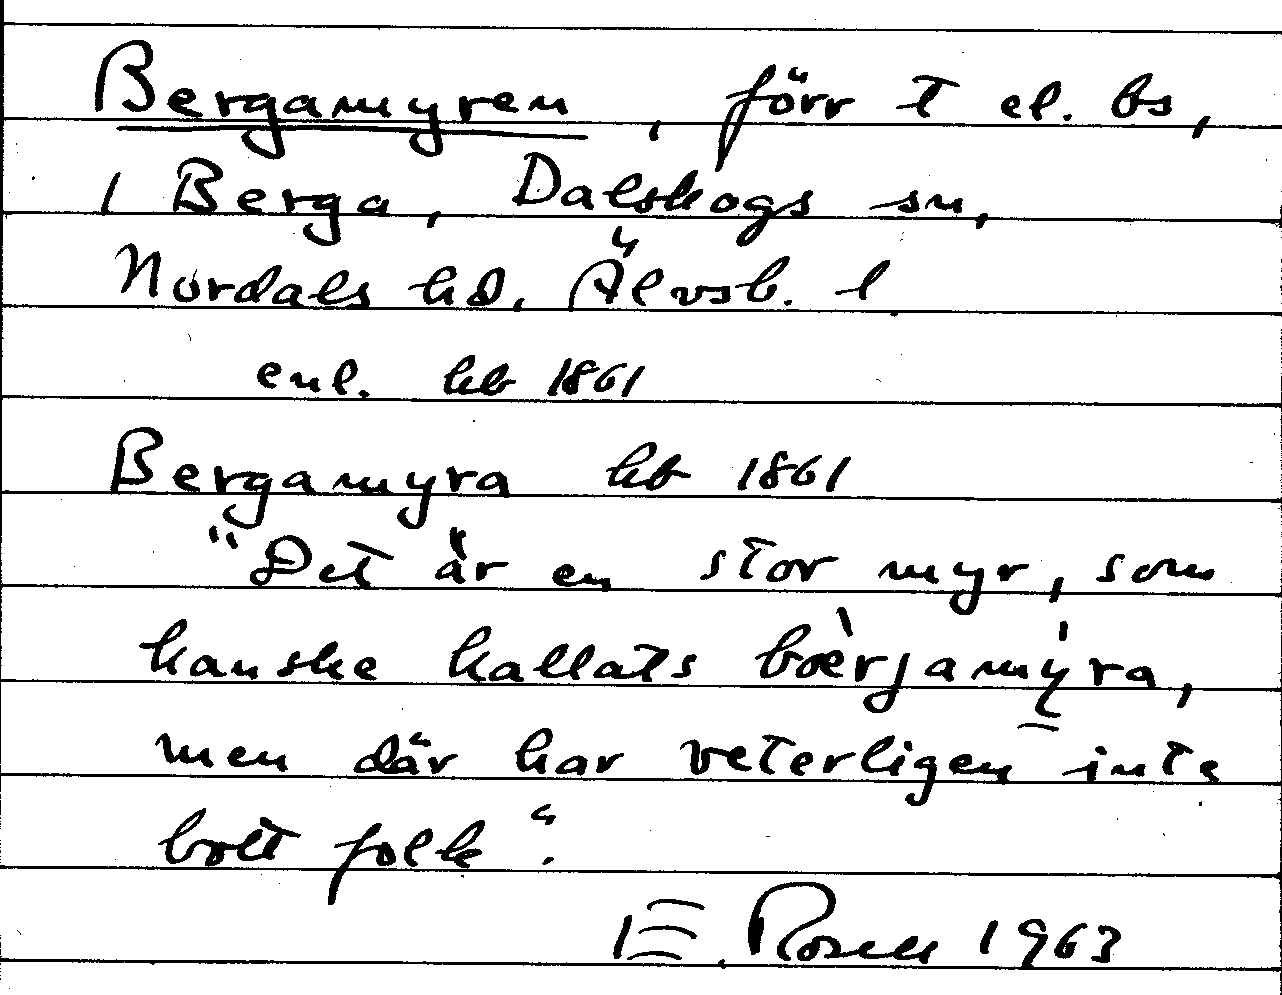 Bergamyren, förr t el. bs,
1 Berga, Dalskogs sn,
Nordals hd. Älvsb. l
enl. hb 1861
Bergamyra hb 1861
"Det är en stor myr, som
kanske kallats bœ̀rjamýra,
men där har veterligen inte
bott folk".
E. Rosell 1963